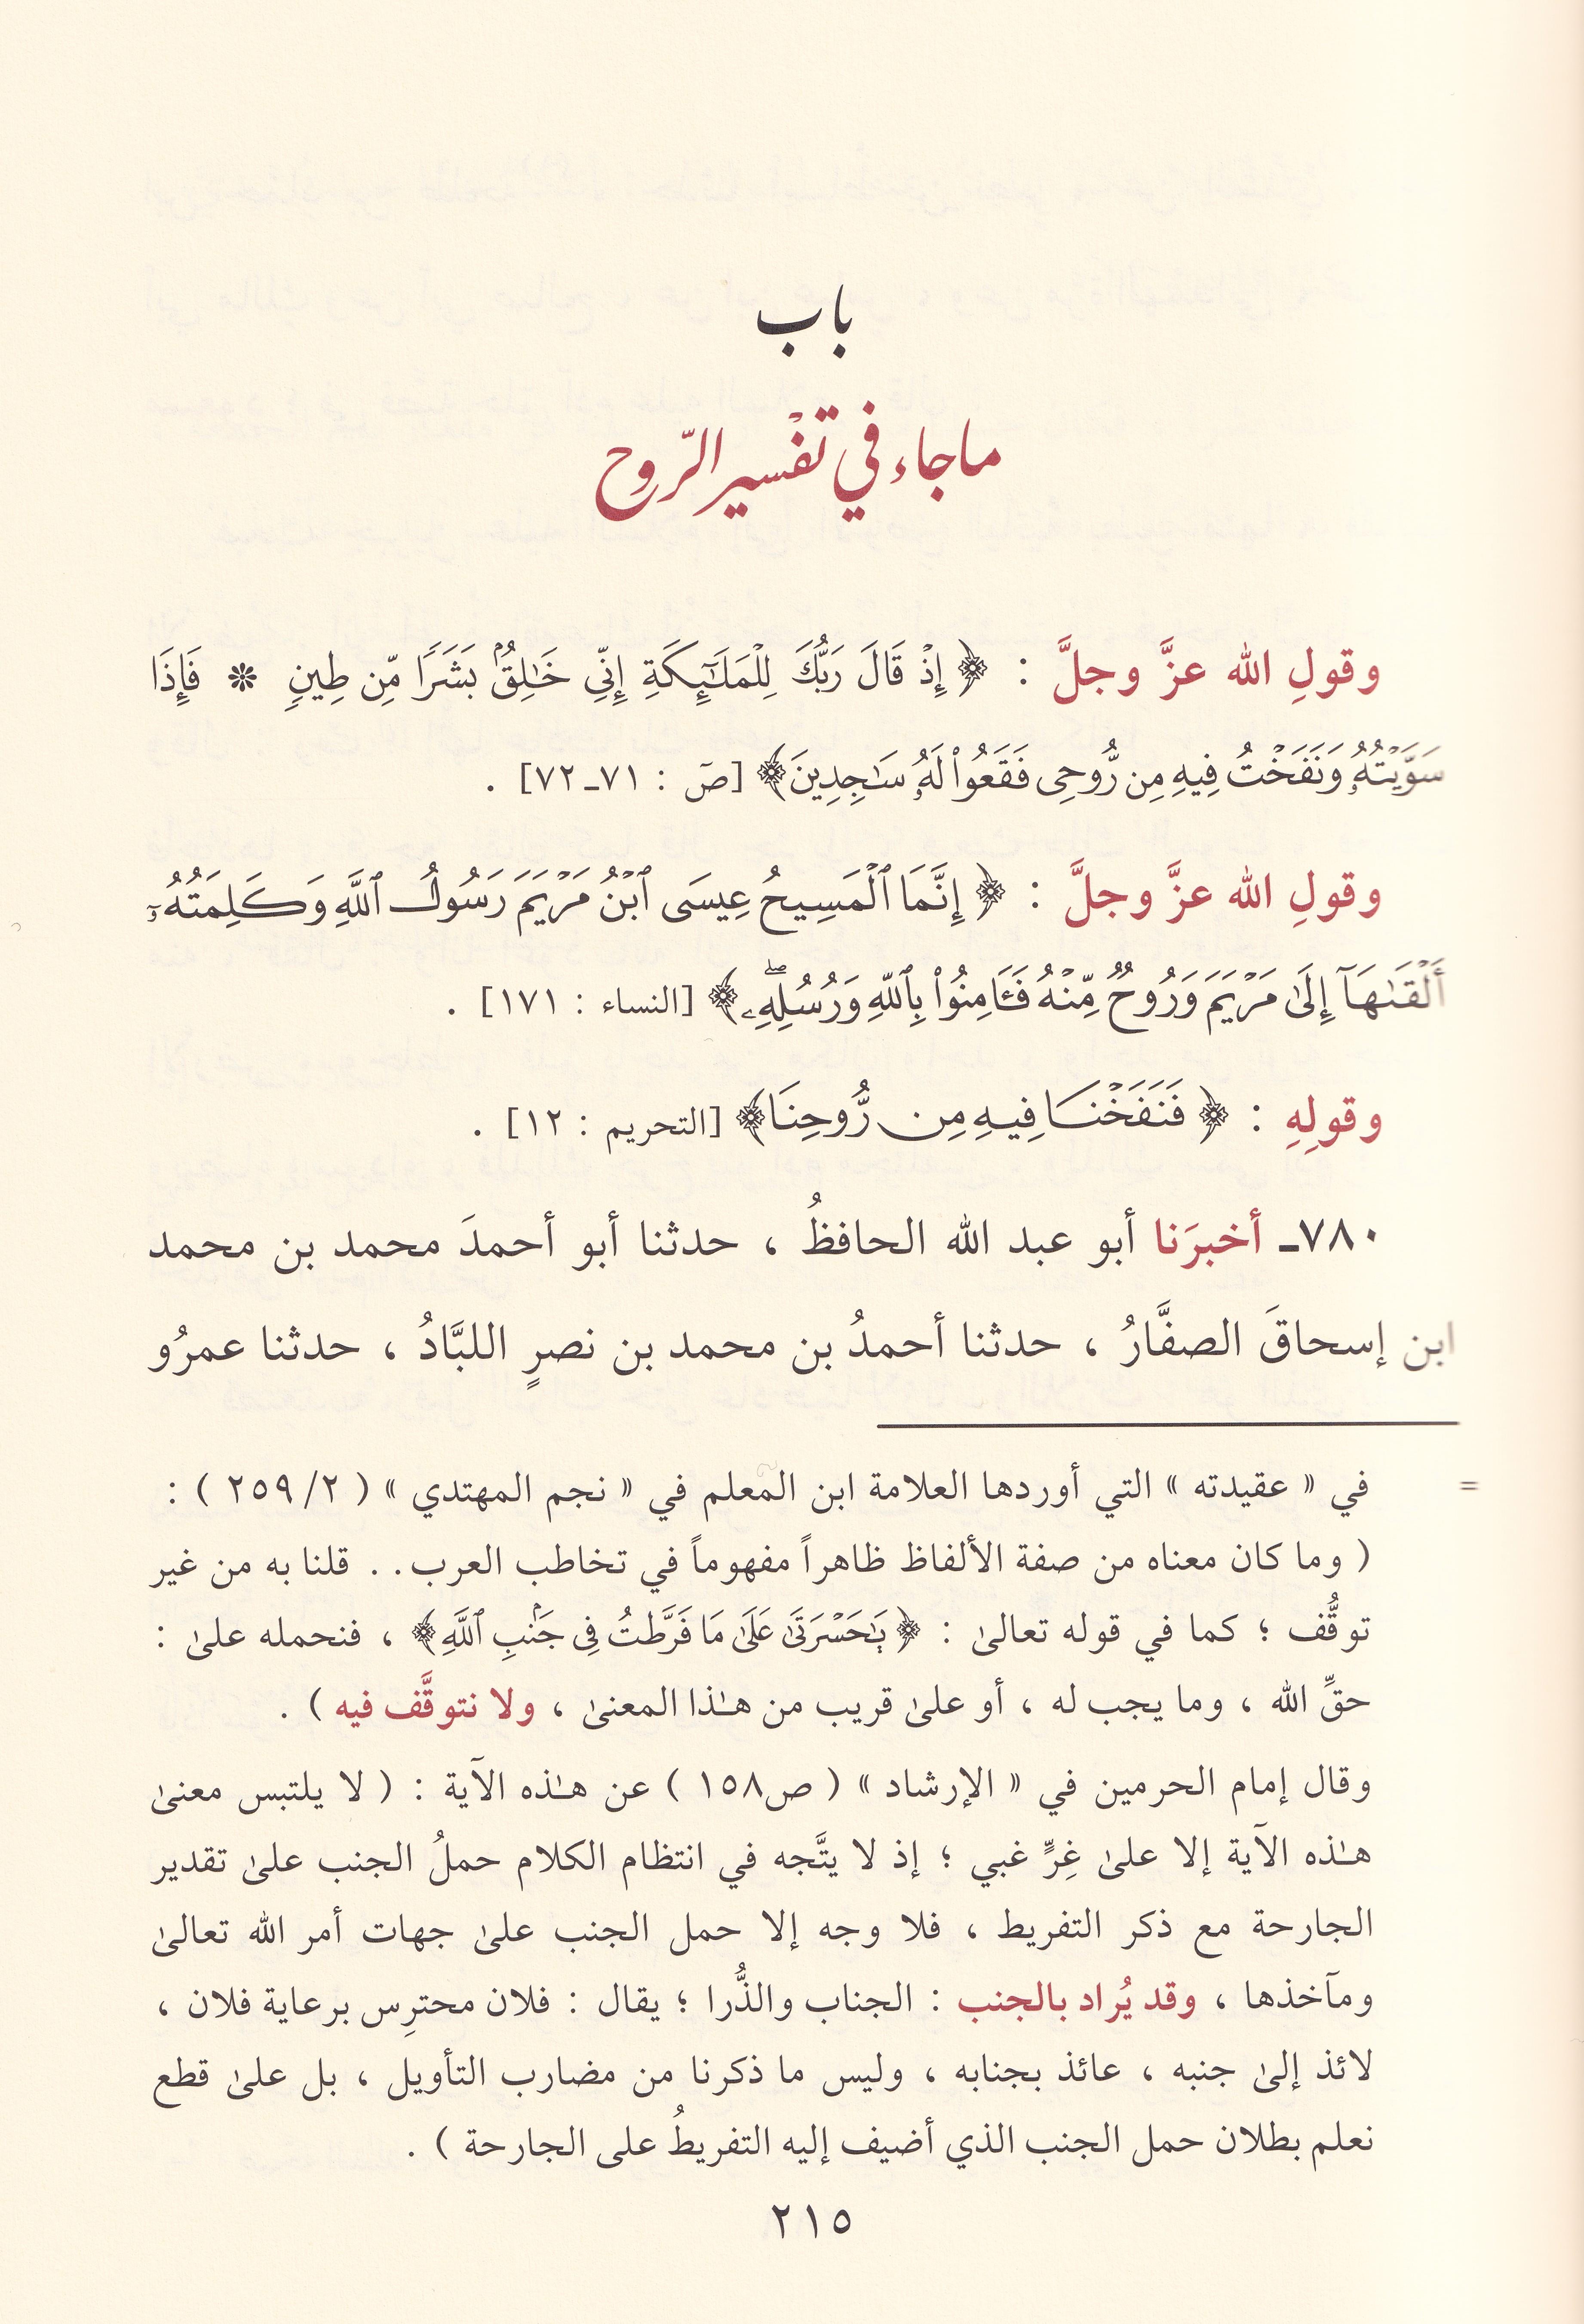 باب
ما جاء في تفسير الرّوح
وقولِ الله عزَّ وجلَّ : ﴿ إِذْ قَالَ رَبُّكَ لِلْمَلَٰٓئِكَةِ إِنِّى خَٰلِقٌۢ بَشَرًا مِّن طِينٍ * فَإِذَا
سَوَّيْتُهُۥ وَنَفَخْتُ فِيهِ مِن رُّوحِى فَقَعُوا۟ لَهُۥ سَٰجِدِينَ﴾ [صٓ : ٧١ـ٧٢] .
وقولِ الله عزَّ وجلَّ : ﴿ إِنَّمَا ٱلْمَسِيحُ عِيسَى ٱبْنُ مَرْيَمَ رَسُولُ ٱللَّهِ وَكَلِمَتُهُۥٓ
أَلْقَىٰهَآ إِلَىٰ مَرْيَمَ وَرُوحٌ مِّنْهُ فَـَٔامِنُوا۟ بِٱللَّهِ وَرُسُلِهِۦۖ﴾ [النساء : ١٧١] .
وقولِهِ : ﴿ فَنَفَخْنَا فِيهِ مِن رُّوحِنَا﴾ [التحريم : ١٢] .
٧٨٠ـ أخبرَنا أبو عبد الله الحافظُ ، حدثنا أبو أحمدَ محمد بن محمد
ابن إسحاقَ الصفَّارُ ، حدثنا أحمدُ بن محمد بن نصرٍ اللبَّادُ ، حدثنا عمرُو
= في « عقيدته » التي أوردها العلامة ابن المعلم في « نجم المهتدي » ( ٢/ ٢٥٩ ) :
( وما كان معناه من صفة الألفاظ ظاهراً مفهوماً في تخاطب العرب . . قلنا به من غير
توقُّف ؛ كما في قوله تعالىٰ : ﴿ بَٰحَسْرَتَىٰ عَلَىٰ مَا فَرَّطتُ فِى جَنۢبِ ٱللَّهِ﴾ ، فنحمله علىٰ :
حقِّ الله ، وما يجب له ، أو علىٰ قريب من هـٰذا المعنىٰ ، ولا نتوقَّف فيه ) .
وقال إمام الحرمين في « الإرشاد » ( ص١٥٨ ) عن هـٰذه الآية : ( لا يلتبس معنىٰ
هـٰذه الآية إلا علىٰ غِرٍّ غبي ؛ إذ لا يتَّجه في انتظام الكلام حملُ الجنب علىٰ تقدير
الجارحة مع ذكر التفريط ، فلا وجه إلا حمل الجنب علىٰ جهات أمر الله تعالىٰ
ومآخذها ، وقد يُراد بالجنب : الجناب والذُّرا ؛ يقال : فلان محترِس برعاية فلان ،
لائذ إلىٰ جنبه ، عائذ بجنابه ، وليس ما ذكرنا من مضارب التأويل ، بل علىٰ قطع
نعلم بطلان حمل الجنب الذي أضيف إليه التفريطُ على الجارحة ) .
٢١٥